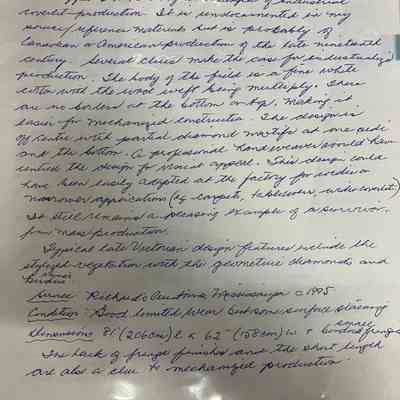 example of industrial
coverlet production. It is undocumented in my
source/reference materials but is probably of
Canadian or American production of the late nineteenth
century. Several clues make the case for industrialized
production. The body of the field is a fine white
cotton with the wool weft being multiply. There
are no borders at the bottom or top, making it
easier for mechanized construction. The design is
off centre with partial diamond motifs at one side
and the bottom. A professional handweaver would have
centred the design for visual appeal. This design could
have been easily adapted at the factory for wider or
narrower application (eg carpets, tablecovers, wide coverlets).
It still remains a pleasing example of a survivor
from mass production.
Typical late Victorian design features include the
stylized vegetation with the geometric diamonds and
borders.
Source: Richard's Auctions, Mississauga c 1995
Condition: Good limited wear but some surface staining
Dimensions 81" (206cm) l x 62" (158cm) w +
The lack of fringe finishes and the short length
are also a clue to mechanized production